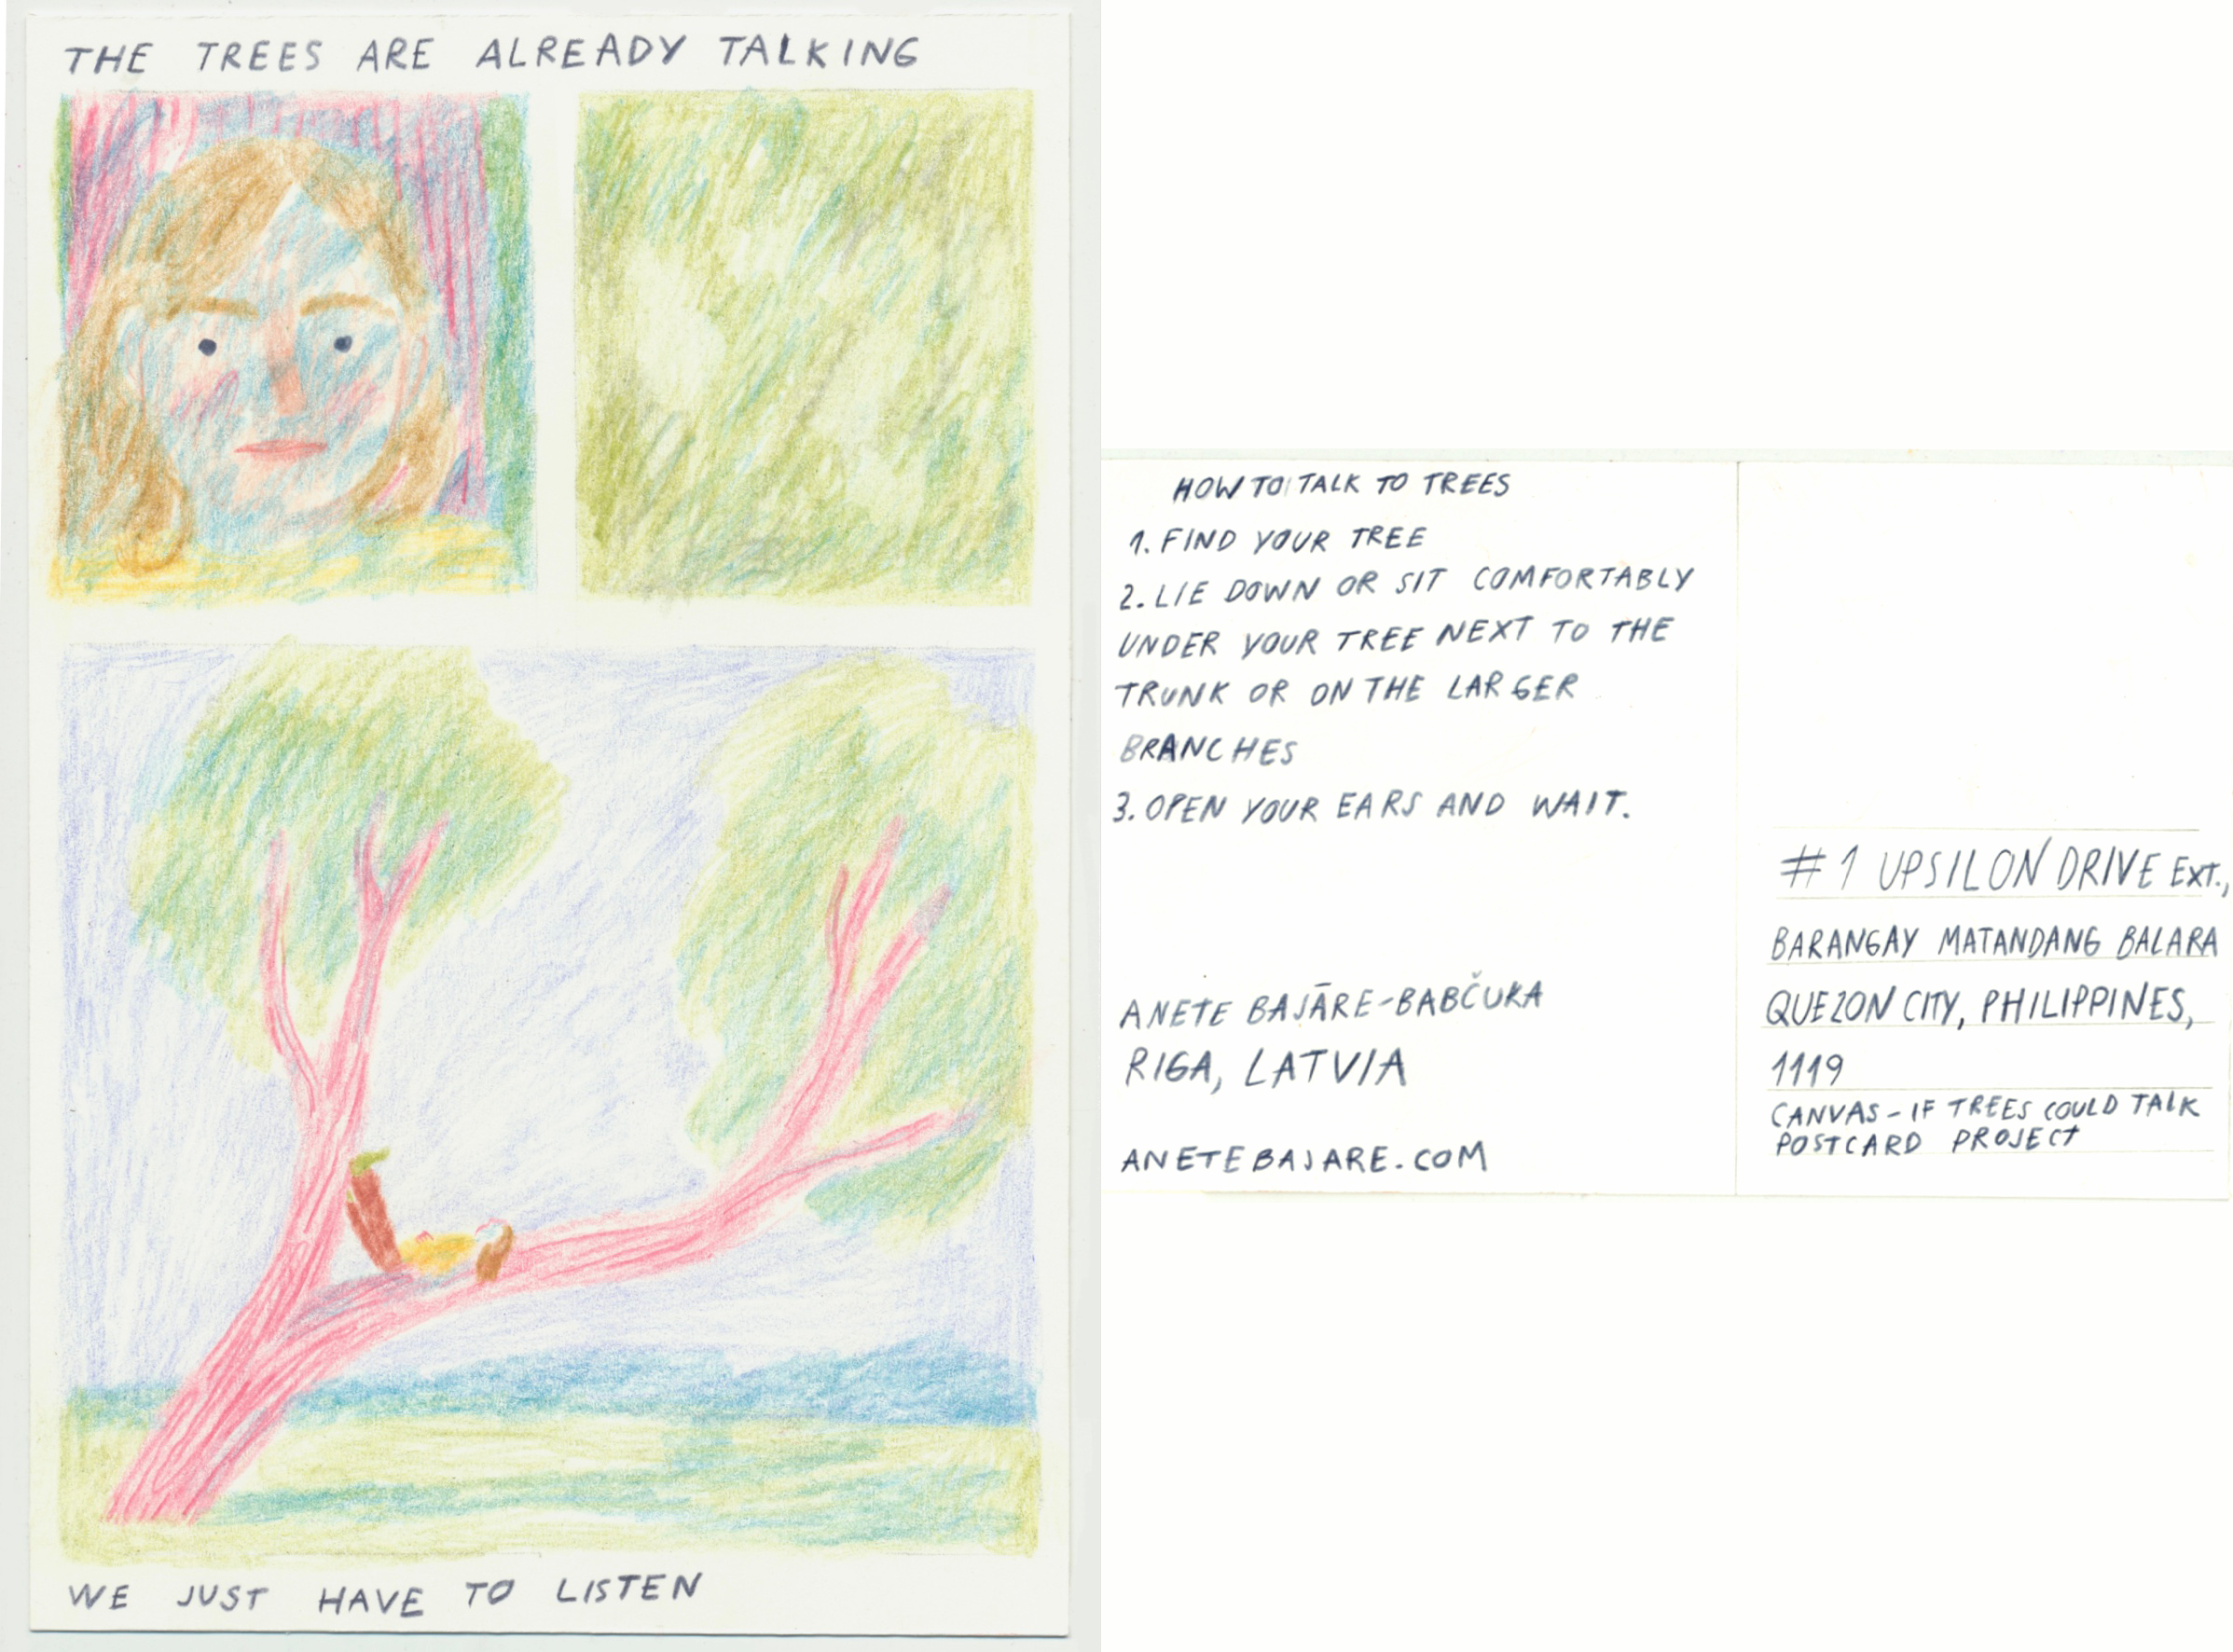 THE TREES ARE ALREADY TALKING
WE JUST HAVE TO LISTEN
HOW TO TALK TO TREES
1. FIND YOUR TREE
2. LIE DOWN OR SIT COMFORTABLY
UNDER YOUR TREE NEXT TO THE
TRUNK OR ON THE LARGER
BRANCHES
3. OPEN YOUR EARS AND WAIT.
ANETE BAJĀRE-BABČUKA
RIGA, LATVIA
ANETEBAJARE.COM
#1 UPSILON DRIVE EXT.,
BARANGAY MATANDANG BALARA
QUEZON CITY, PHILIPPINES,
1119
CANVAS - IF TREES COULD TALK
POSTCARD PROJECT